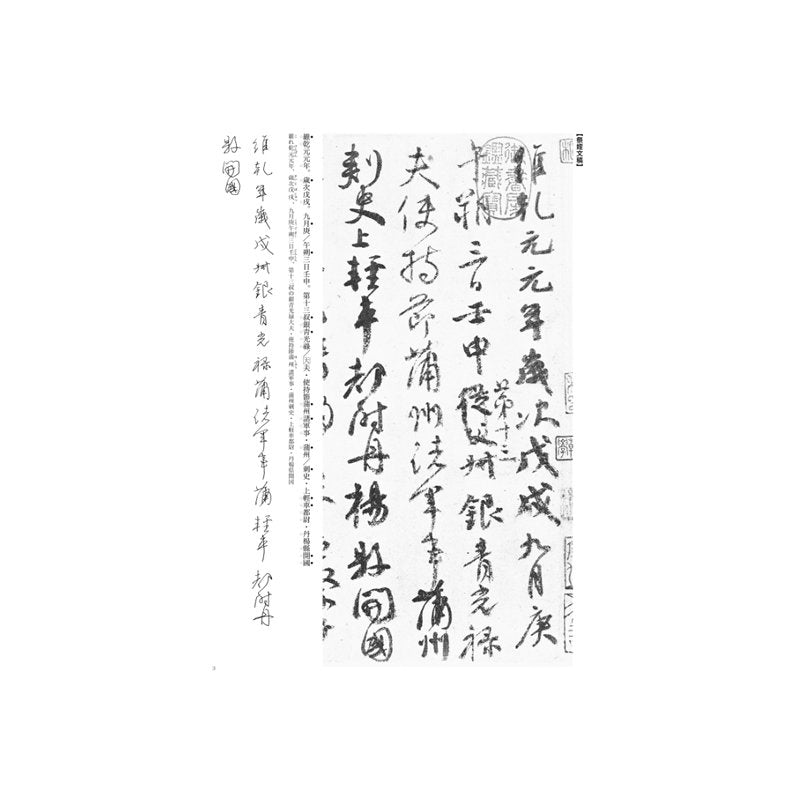 【祭姪文稿】
維乾元元年歲次戊戌九月庚
午朔三日壬申第十三從父叔銀青光禄
夫使持節蒲州諸軍事蒲州
刺史上輕車都尉丹楊縣開國
維乾元元年。歲次戊戌。九月庚/午朔三日壬申。第十三叔銀青光祿/大夫・使持節蒲州諸軍事・蒲州/刺史・上輕車都尉・丹楊縣開國
維れ乾元元年、歳次戊戌、九月庚午朔三日壬申、第十三叔の銀青光禄大夫・使持節蒲州諸軍事・蒲州刺史・上軽車都尉・丹楊県開国
維乾年歲戊叔銀青光禄蒲諸軍事蒲輕車都尉丹
縣開國
3